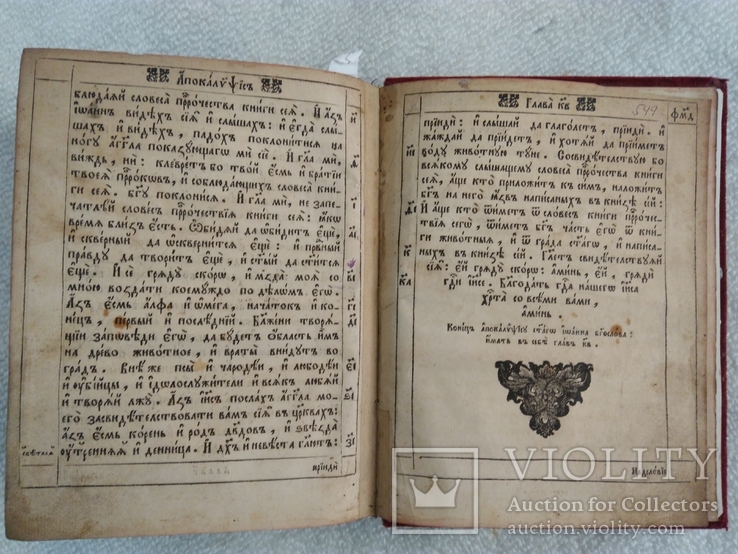 А҆покалѷѱїсъ
блюдаѧй словеса прⷪ҇рочества книги сеѧ̀. И҆ а҆зъ
і҆ѡа́ннъ видѣхъ сїѧ̀ и҆ слышахъ: и҆ є҆гда слы
шахъ и҆ видѣхъ, падохъ поклонитисѧ на
ногꙋ а҆́гг҃ла показꙋющагѡ ми сїѝ. И҆ гл҃а мѝ,
виждь, нѝ: клевретъ бо твой є҆смь и҆ братїи
твоеѧ̀ прⷪ҇рокѡвъ, и҆ соблюдающихъ словеса кни
ги сеѧ̀. бг҃ꙋ поклонисѧ. И҆ гл҃а мѝ, не запе
чатлѣй словесъ прⷪ҇рочествїѧ книги сеѧ̀: ꙗ҆кѡ
время близъ є҆сть. Ѡ҆бидѧй да ѡ҆бидитъ є҆щѐ,
и҆ скверный да ѡ҆сквернитсѧ є҆щѐ: и҆ првⷣный
правдꙋ да творитъ є҆щѐ, и҆ ст҃ый да ст҃итсѧ
є҆щѐ. И҆ сѐ грѧдꙋ скорѡ, и҆ мъзда моѧ̀ со
мною воздати комꙋждо по дѣлѡмъ є҆гѡ̀.
А҆зъ є҆смь а҆лфа и҆ ѡ҆мега, начатокъ и҆ ко
нецъ, первый и҆ послѣдній. Блажени творѧ
щїи заповѣди є҆гѡ̀, да бꙋдетъ ѡ҆бласть и҆мъ
на древо животное, и҆ враты внидꙋтъ во
градъ. Внѣ же псы̀ и҆ чародѣи, и҆ любодѣи
и҆ ᲂу҆бїйцы, и҆ і҆дѡлослꙋжители и҆ всѧкъ любѧй
и҆ творѧй лжꙋ̀. А҆зъ і҆и҃съ послахъ а҆́гг҃ла мое
го засвидѣтельствовати вамъ сїѧ̀ въ цр҃квахъ:
а҆зъ є҆смь корень и҆ родъ дв҃довъ, и҆ ѕвѣзда
ᲂу҆треннѧѧ и҆ денница. И҆ дх҃ъ и҆ невѣста гл҃ютъ:
прїиди
и҆
ѳ҃
і҃
а҃і
в҃і
г҃і
д҃і
є҃і
ѕ҃і
з҃і
Глава̀ к҃в
544
фм҃д
прїиди: и҆ слышай да глаголетъ, прїиди. и҆
жаждай да прїидетъ, и҆ хотѧй да прїиметъ
водꙋ животнꙋю тꙋне. Сосвидѣтельствꙋю бо
всѧкомꙋ слышащемꙋ словеса прⷪ҇рочества книги
сеѧ̀, а҆ще кто приложитъ къ симъ, наложитъ
бг҃ъ на него ꙗ҆звъ написаныхъ въ кни́зѣ сей:
И҆ а҆ще кто ѿиметъ ѿ словесъ книги прⷪ҇рочес
твїѧ сегѡ̀, ѿиметъ бг҃ъ часть є҆гѡ̀ ѿ кни
ги животныѧ, и҆ ѿ града ст҃агѡ, и҆ написа
ныхъ въ книзѣ сей. Гл҃етъ свидѣтельствꙋѧй
сїѧ̀: є҆й грѧдꙋ скорѡ: а҆минь, є҆й, грѧди
гдⷭ҇и і҆и҃се. Благодать гдⷭ҇а нашегѡ і҆и҃са
хрⷭ҇та со всѣми вами,
а҆минь.
Конецъ а҆покалѷѱїсꙋ ст҃агѡ і҆ѡанна бг҃ослова:
и҆мать въ себѣ главъ к҃в.
и҃і
ѳ҃і
к҃
к҃а
VIOLITY
Auction for Collectors
auction.violity.com